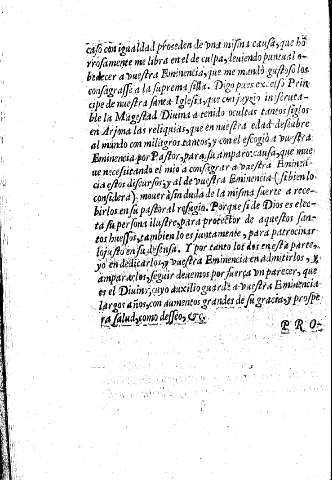 caso con igualdad proseden de vna misma causa, que ho
rrosamente me libra en el de culpa, deviendo puntual o-
bedecer a vuestra Eminencia, que me mandò gustoso los
consagrasse a la suprema silla. Digo pues excelso Prin-
cipe de nuestra santa Iglesia, que con juyzio inscruta-
ble la Magestad Diuina a tenido ocultas tantos siglos
en Arjona las reliquias, que en nuestra edad descubre
al mundo con milagros tantos, y con el escogiò a vuestra
Eminencia por Pastor, para su amparo: causa, que mue
ue necesitando el mio a consagrar a vuestra Eminen-
cia estos discursos, y al de vuestra Eminencia (si bien lo
considera) mouerà sin duda de la misma suerte a rece-
birlos en su pastoral refugio. Porque si de Dios es elec-
ta su persona ilustre, para protector de aquestos san-
tos huessos, tambien lo es juntamente, para patrocinar
lo justo en su defensa. Y por tanto los dos en esta parte,
yo en dedicarlos, y vuestra Eminencia en admitirlos, y
ampararlos, seguir deuemos por fuerça vn parecer, que
es el Diuino, cuyo auxilio guarde a vuestra Eminencia
largos años, con aumentos grandes de su gracia, y prospe
ra salud, como desseo, &c.
P R O-